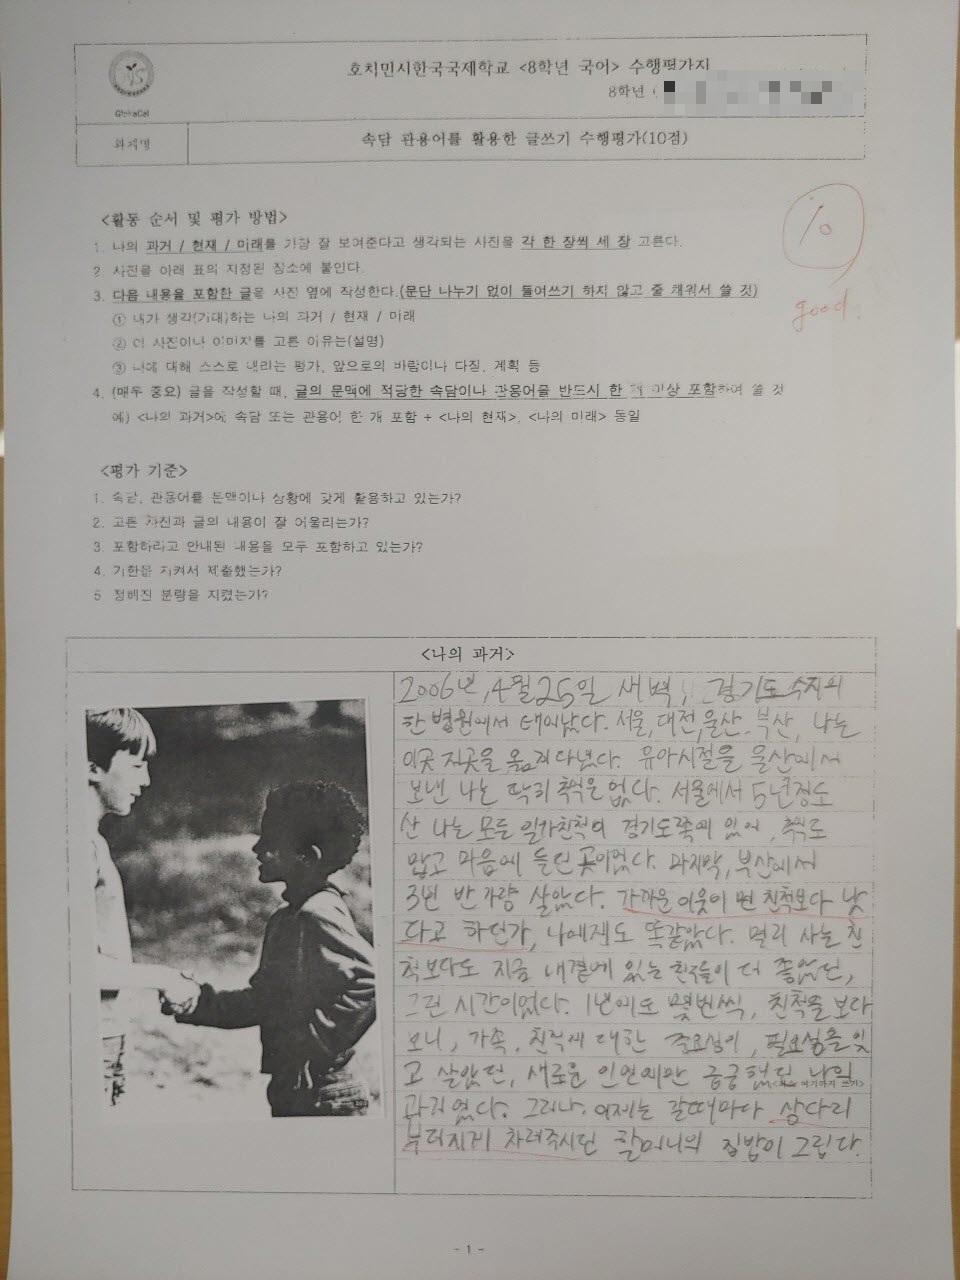 호치민시한국국제학교 <8학년 국어> 수행평가지
8학년 (
GlobalCal
과제명
속담 관용어를 활용한 글쓰기 수행평가(10점)
10
good.
<활동 순서 및 평가 방법>
1. 나의 과거 / 현재 / 미래를 가장 잘 보여준다고 생각되는 사진을 각 한 장씩 세 장 고른다.
2. 사진을 아래 표의 지정된 장소에 붙인다.
3. 다음 내용을 포함한 글을 사진 옆에 작성한다.(문단 나누기 없이 들여쓰기 하지 않고 줄 채워서 쓸 것)
① 내가 생각(기대)하는 나의 과거 / 현재 / 미래
② 이 사진이나 이미지를 고른 이유는(설명)
③ 나에 대해 스스로 내리는 평가, 앞으로의 바람이나 다짐, 계획 등
4. (매우 중요) 글을 작성할 때, 글의 문맥에 적당한 속담이나 관용어을 반드시 한 개 이상 포함하여 쓸 것
예) <나의 과거>에 속담 또는 관용어 한 개 포함 + <나의 현재>, <나의 미래> 동일
<평가 기준>
1. 속담, 관용어를 문맥이나 상황에 맞게 활용하고 있는가?
2. 고른 사진과 글의 내용이 잘 어울리는가?
3. 포함하라고 안내된 내용을 모두 포함하고 있는가?
4. 기한을 지켜서 제출했는가?
5. 정해진 분량을 지켰는가?
<나의 과거>
2006년, 4월 25일 새벽, 경기도 수지의
한 병원에서 태어났다. 서울, 대전, 울산. 부산, 나는
이곳 저곳을 옮겨 다녔다. 유아시절을 울산에서
보낸 나는 딱히 추억은 없다. 서울에서 5년정도
산 나는 모든 일가친척이 경기도쪽에 있어, 추억도
많고 마음에 들던 곳이었다. 마지막, 부산에서
3년 반 가량 살았다. 가까운 이웃이 먼 친척보다 낫
다고 하던가, 나에겐도 똑같았다. 멀리 사는 친
척보다도 지금 내곁에 있는 친구들이 더 좋았던,
그런 시간이었다. 1년에도 몇번씩, 친척을 보다
보니, 가족, 친척에 대한 중요성이, 필요성을 잊
고 살았던, 새로운 인연에만 급급했던 나의
<최소 여기까지 쓰기>
과거였다. 그러나. 이제는 갈때마다 상다리
부러지게 차려주시던 할머니의 집밥이 그립다.
- 1 -